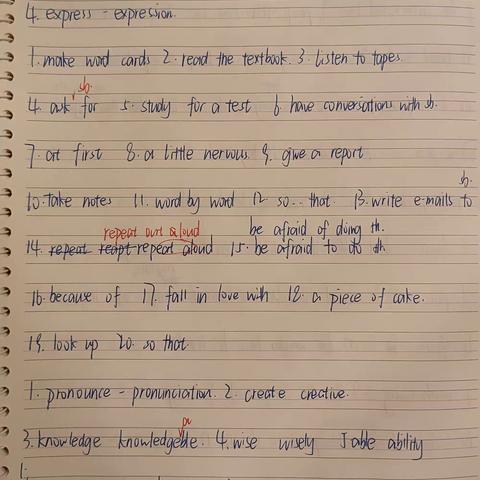 4. express - expression.
1. make word cards 2. read the textbook. 3. listen to tapes.
sb.
4. ask for 5. study for a test 6. have conversations with sb.
7. at first 8. a little nervous 9. give a report
sb.
10. take notes 11. word by word 12. so... that. 13. write e-mails to
repeat out aloud be afraid of doing th.
14. repeat reapt repeat aloud 15. be afraid to do th
16. because of 17. fall in love with 18. a piece of cake.
19. look up 20. so that.
1. pronounce - pronunciation. 2. create creative.
3. knowledge knowledgeble. 4. wise wisely 5 able ability